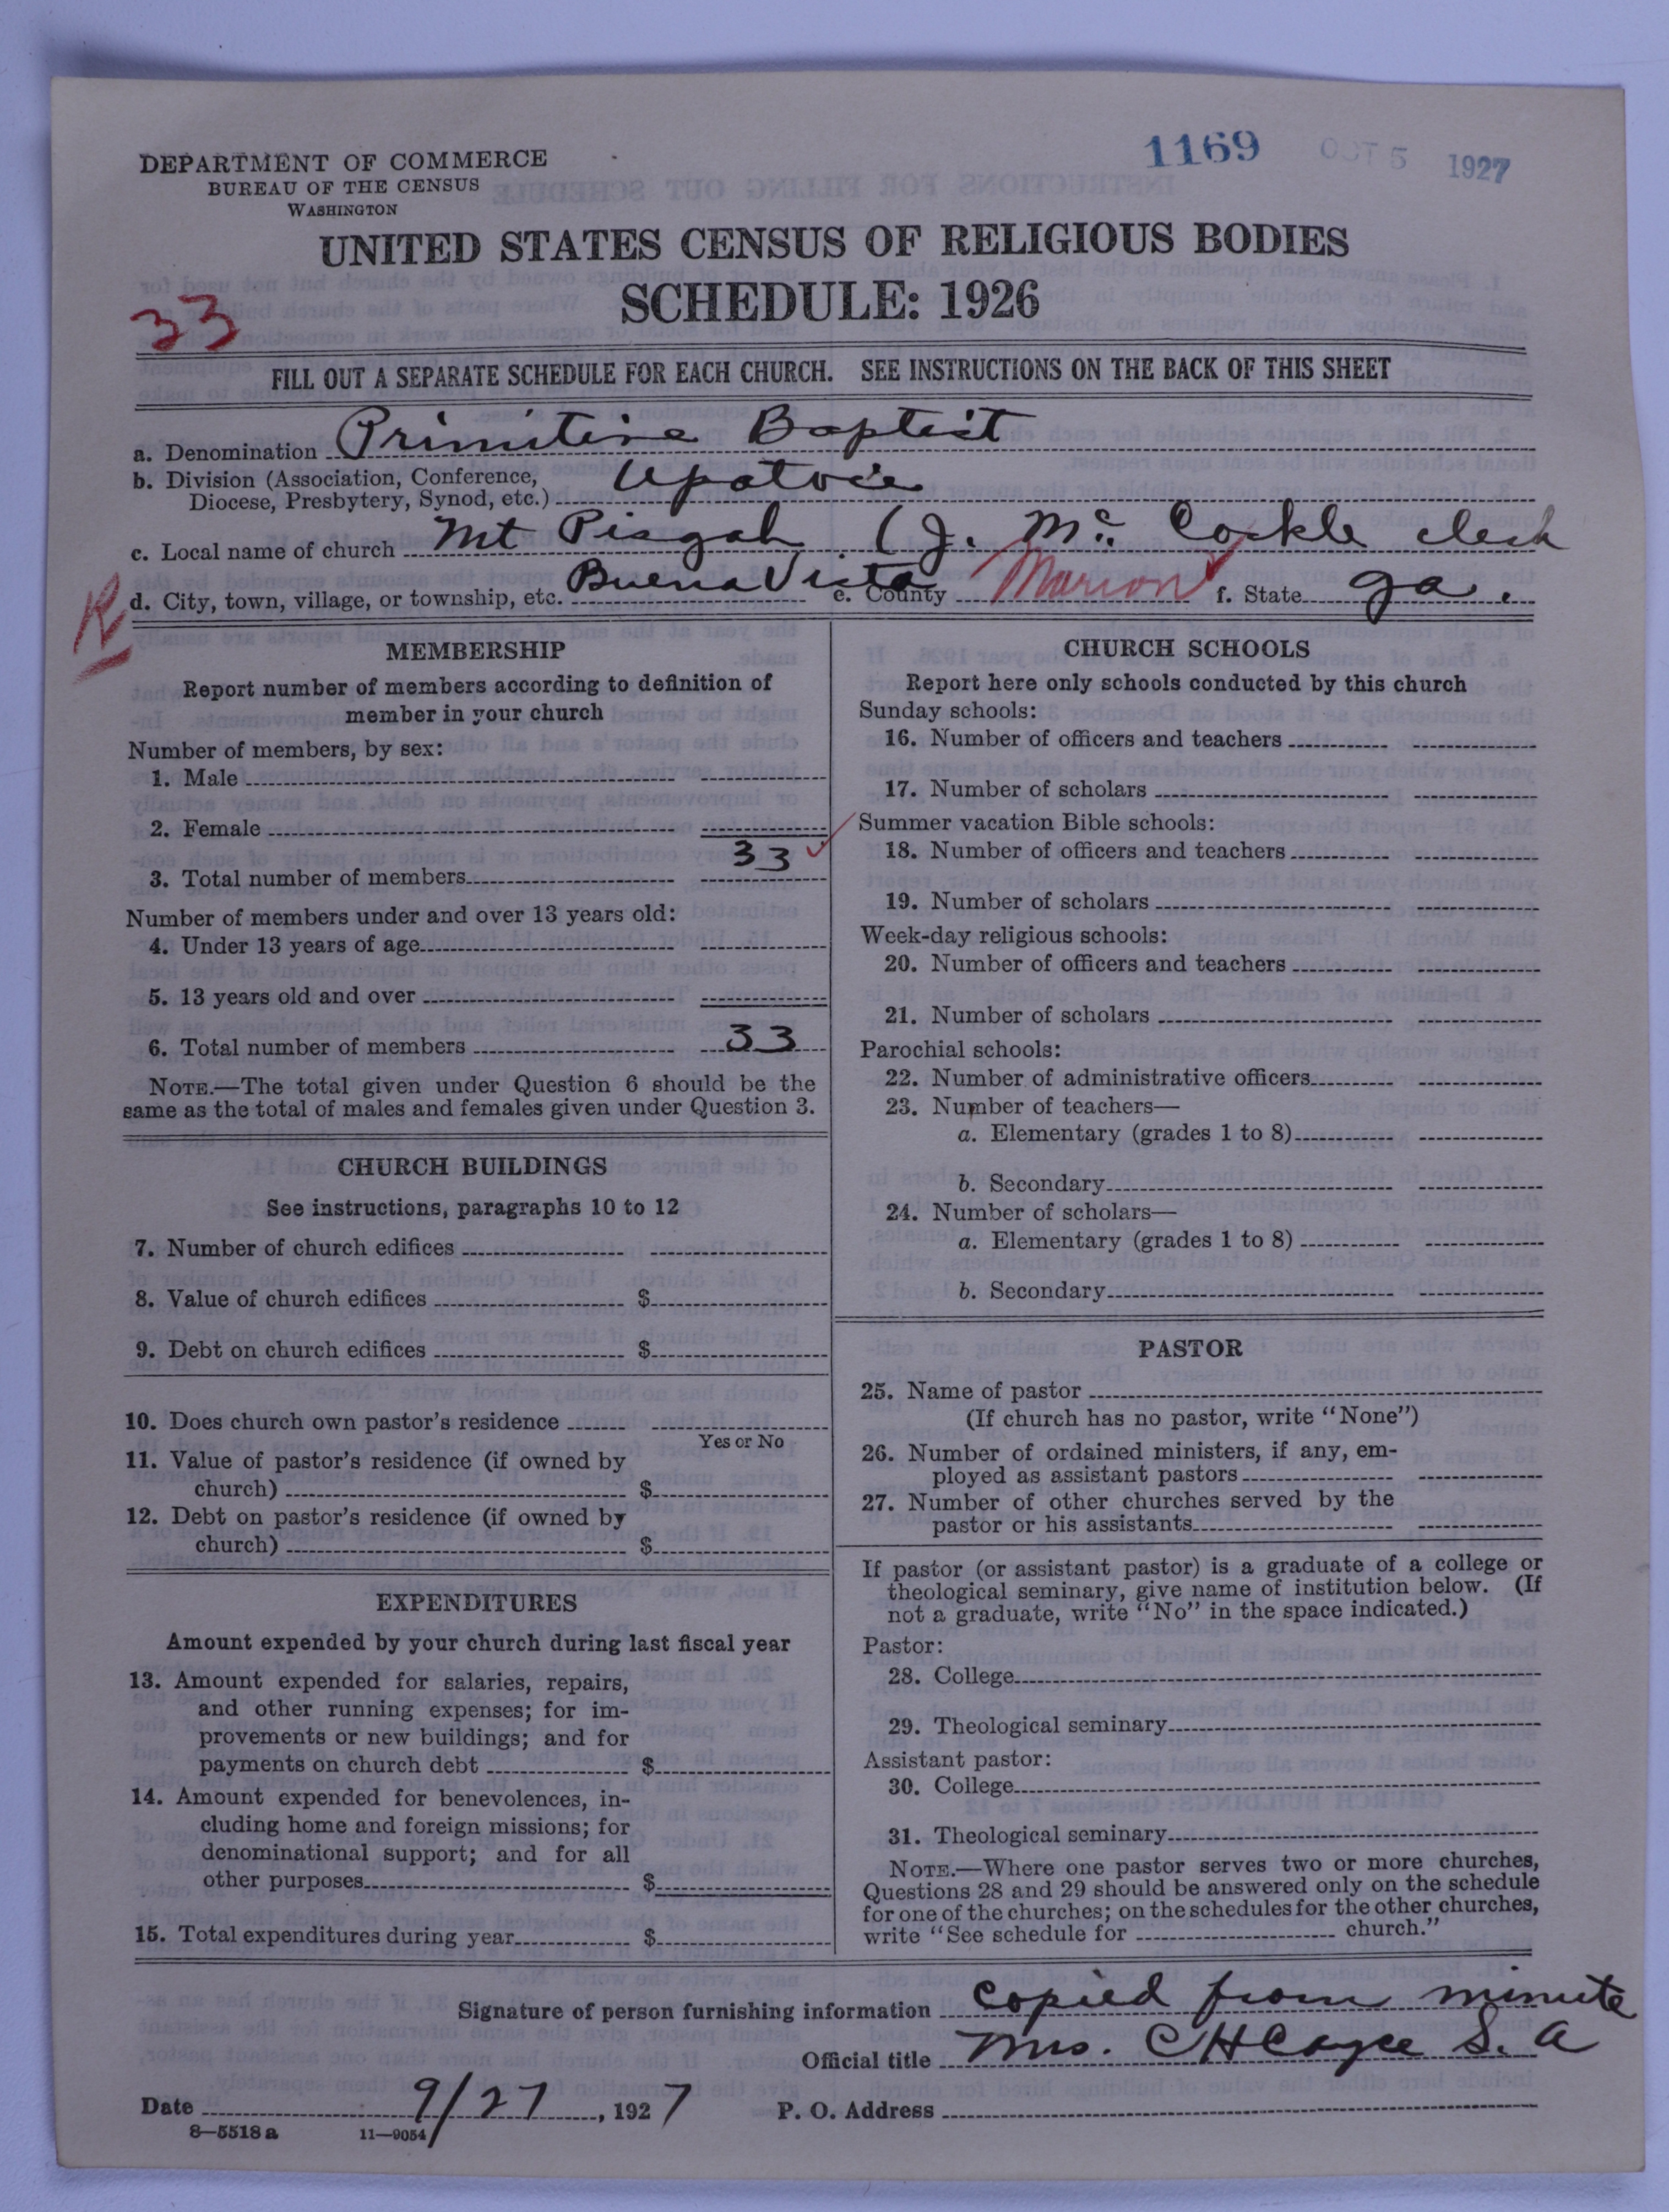 DEPARTMENT OF COMMERCE
BUREAU OF THE CENSUS
WASHINGTON
1169 OCT 5 1927
UNITED STATES CENSUS OF RELIGIOUS BODIES
SCHEDULE: 1926
33
FILL OUT A SEPARATE SCHEDULE FOR EACH CHURCH. SEE INSTRUCTIONS ON THE BACK OF THIS SHEET
a. Denomination Primitive Baptist
b. Division (Association, Conference, Diocese, Presbytery, Synod, etc.) Upatoie
c. Local name of church Mt Pisgah (J. Mc. Corkle clerk
R
d. City, town, village, or township, etc. Buena Vista e. County Marion f. State Ga.
MEMBERSHIP
Report number of members according to definition of
member in your church
Number of members, by sex:
1. Male
2. Female
3. Total number of members 33
Number of members under and over 13 years old:
4. Under 13 years of age
5. 13 years old and over
6. Total number of members 33
NOTE.—The total given under Question 6 should be the
same as the total of males and females given under Question 3.
CHURCH BUILDINGS
See instructions, paragraphs 10 to 12
7. Number of church edifices
8. Value of church edifices $
9. Debt on church edifices $
10. Does church own pastor's residence
Yes or No
11. Value of pastor's residence (if owned by
church) $
12. Debt on pastor's residence (if owned by
church) $
EXPENDITURES
Amount expended by your church during last fiscal year
13. Amount expended for salaries, repairs,
and other running expenses; for im-
provements or new buildings; and for
payments on church debt $
14. Amount expended for benevolences, in-
cluding home and foreign missions; for
denominational support; and for all
other purposes $
15. Total expenditures during year $
CHURCH SCHOOLS
Report here only schools conducted by this church
Sunday schools:
16. Number of officers and teachers
17. Number of scholars
Summer vacation Bible schools:
18. Number of officers and teachers
19. Number of scholars
Week-day religious schools:
20. Number of officers and teachers
21. Number of scholars
Parochial schools:
22. Number of administrative officers
23. Number of teachers—
a. Elementary (grades 1 to 8)
b. Secondary
24. Number of scholars—
a. Elementary (grades 1 to 8)
b. Secondary
PASTOR
25. Name of pastor
(If church has no pastor, write "None")
26. Number of ordained ministers, if any, em-
ployed as assistant pastors
27. Number of other churches served by the
pastor or his assistants
If pastor (or assistant pastor) is a graduate of a college or
theological seminary, give name of institution below. (If
not a graduate, write "No" in the space indicated.)
Pastor:
28. College
29. Theological seminary
Assistant pastor:
30. College
31. Theological seminary
NOTE.—Where one pastor serves two or more churches,
Questions 28 and 29 should be answered only on the schedule
for one of the churches; on the schedules for the other churches,
write "See schedule for church."
Signature of person furnishing information Copied from minute
Official title Mrs. C H Cayce S. A
Date 9/27, 1927 P. O. Address
8—5518 a 11—9054